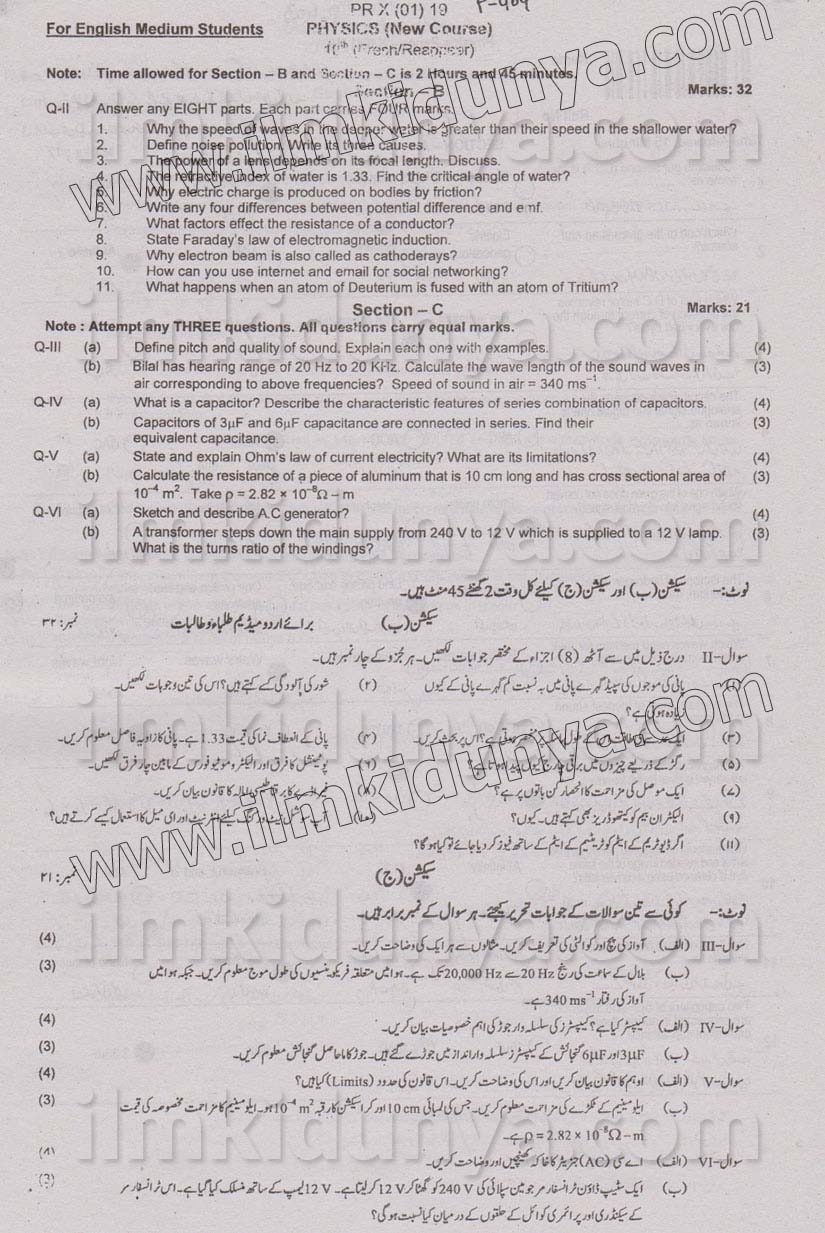 PR X (01) 19 P-404
For English Medium Students PHYSICS (New Course)
10th (Fresh/Reappear)
Note: Time allowed for Section – B and Section – C is 2 Hours and 45 minutes.
Section – B Marks: 32
Q-II Answer any EIGHT parts. Each part carries FOUR marks.
1. Why the speed of waves in the deeper water is greater than their speed in the shallower water?
2. Define noise pollution. Write its three causes.
3. The power of a lens depends on its focal length. Discuss.
4. The refractive index of water is 1.33. Find the critical angle of water?
5. Why electric charge is produced on bodies by friction?
6. Write any four differences between potential difference and emf.
7. What factors effect the resistance of a conductor?
8. State Faraday's law of electromagnetic induction.
9. Why electron beam is also called as cathoderays?
10. How can you use internet and email for social networking?
11. What happens when an atom of Deuterium is fused with an atom of Tritium?
Section – C Marks: 21
Note : Attempt any THREE questions. All questions carry equal marks.
Q-III (a) Define pitch and quality of sound. Explain each one with examples. (4)
(b) Bilal has hearing range of 20 Hz to 20 KHz. Calculate the wave length of the sound waves in (3)
air corresponding to above frequencies? Speed of sound in air = 340 ms⁻¹.
Q-IV (a) What is a capacitor? Describe the characteristic features of series combination of capacitors. (4)
(b) Capacitors of 3µF and 6µF capacitance are connected in series. Find their (3)
equivalent capacitance.
Q-V (a) State and explain Ohm's law of current electricity? What are its limitations? (4)
(b) Calculate the resistance of a piece of aluminum that is 10 cm long and has cross sectional area of (3)
10⁻⁴ m². Take ρ = 2.82 × 10⁻⁸Ω – m
Q-VI (a) Sketch and describe A.C generator? (4)
(b) A transformer steps down the main supply from 240 V to 12 V which is supplied to a 12 V lamp. (3)
What is the turns ratio of the windings?
نوٹ:- سیکشن (ب) اور سیکشن (ج) کیلئے کل وقت 2 گھنٹے 45 منٹ ہیں۔
سیکشن (ب) برائے اردو میڈیم طلباء و طالبات نمبر: ۳۲
سوال-II درج ذیل میں سے آٹھ (8) اجزاء کے مختصر جوابات لکھیں۔ ہر جُزو کے چار نمبر ہیں۔
(۱) پانی کی موجوں کی سپیڈ گہرے پانی میں بہ نسبت کم گہرے پانی کے کیوں (۲) شور کی آلودگی کسے کہتے ہیں؟ اس کی تین وجوہات لکھیں۔
زیادہ ہوتی ہے؟
(۳) ایک عدسے کی طاقت اس کے طول ماسکہ پر منحصر ہوتی ہے؟ اس پر بحث کریں۔ (۴) پانی کے انعطاف نما کی قیمت 1.33 ہے۔ پانی کا زاویہ فاصل معلوم کریں۔
(۵) رگڑ کے ذریعے چیزوں میں برقی چارج کیوں پیدا ہوتا ہے؟ (۶) پوٹینشل کا فرق اور الیکٹروموٹیو فورس کے مابین چار فرق لکھیں۔
(۷) ایک موصل کی مزاحمت کا انحصار کن باتوں پر ہے؟ (۸) فیراڈے کا برقناطیسی امالہ کا قانون بیان کریں۔
(۹) الیکٹران بیم کو کیتھوڈ ریز بھی کہتے ہیں۔ کیوں؟ (۱۰) آپ سوشل نیٹ ورکنگ کیلئے انٹرنیٹ اور ای میل کا استعمال کیسے کرتے ہیں؟
(۱۱) اگر ڈیوٹریم کے ایٹم کو ٹریٹیم کے ایٹم کے ساتھ فیوز کر دیا جائے تو کیا ہو گا؟
سیکشن (ج) نمبر: ۲۱
نوٹ:- کوئی سے تین سوالات کے جوابات تحریر کیجئے۔ ہر سوال کے نمبر برابر ہیں۔
سوال-III (الف) آواز کی پچ اور کوالٹی کی تعریف کریں۔ مثالوں سے ہر ایک کی وضاحت کریں۔ (4)
(ب) بلال کے سماعت کی رینج 20 Hz سے 20,000 Hz تک ہے۔ ہوا میں متعلقہ فریکوینسیوں کی طول موج معلوم کریں۔ جبکہ ہوا میں (3)
آواز کی رفتار 340 ms⁻¹ ہے۔
سوال-IV (الف) کپیسٹر کیا ہے؟ کپیسٹرز کی سلسلہ وار جوڑ کی اہم خصوصیات بیان کریں۔ (4)
(ب) 3µF اور 6µF گنجائش کے کپیسٹرز سلسلہ وار انداز میں جوڑے گئے ہیں۔ جوڑ کا ماحاصل گنجائش معلوم کریں۔ (3)
سوال-V (الف) اوہم کا قانون بیان کریں اور اس کی وضاحت کریں۔ اس قانون کی حدود (Limits) کیا ہیں؟ (4)
(ب) ایلومینیم کے ٹکڑے کی مزاحمت معلوم کریں۔ جس کی لمبائی 10 cm اور کراسیکشن کا رقبہ 10⁻⁴ m² ہو۔ ایلومینیم کا مزاحمت مخصوصہ کی قیمت (3)
ρ = 2.82 × 10⁻⁸Ω – m ہے۔
سوال-VI (الف) اے سی (AC) جنریٹر کا خاکہ کھینچیں اور وضاحت کریں۔ (4)
(ب) ایک سٹیپ ڈاؤن ٹرانسفارمر جو مین سپلائی کی 240 V کو گھٹا کر 12 V کر لیتا ہے۔ 12 V لیمپ کے ساتھ منسلک کیا گیا ہے۔ اس ٹرانسفارمر (3)
کے سیکنڈری اور پرائمری کوائل کے حلقوں کے درمیان کیا نسبت ہو گی؟
www.ilmkidunya.com
ilmkidunya.com
ilmkidunya.com
ilmkidunya.com
ilmkidunya.com
www.ilmkidunya.com
ilmkidunya.com
ilmkidunya.com
ilmkidunya.com